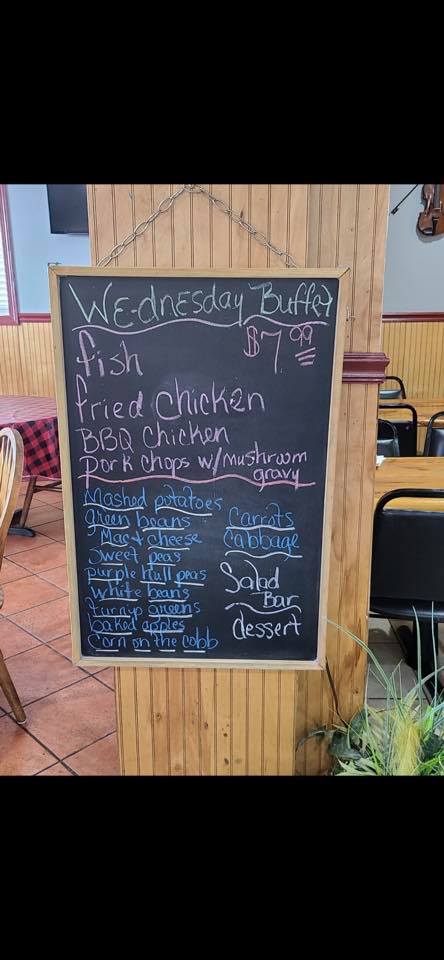 Wednesday Buffet
fish $7.99
fried chicken
BBQ Chicken
pork chops w/mushroom
gravy
Mashed potatoes
green beans
Mac & cheese
sweet peas
purple hull peas
white beans
turnip greens
baked apples
Corn on the cobb
Carrots
Cabbage
Salad
Bar
dessert